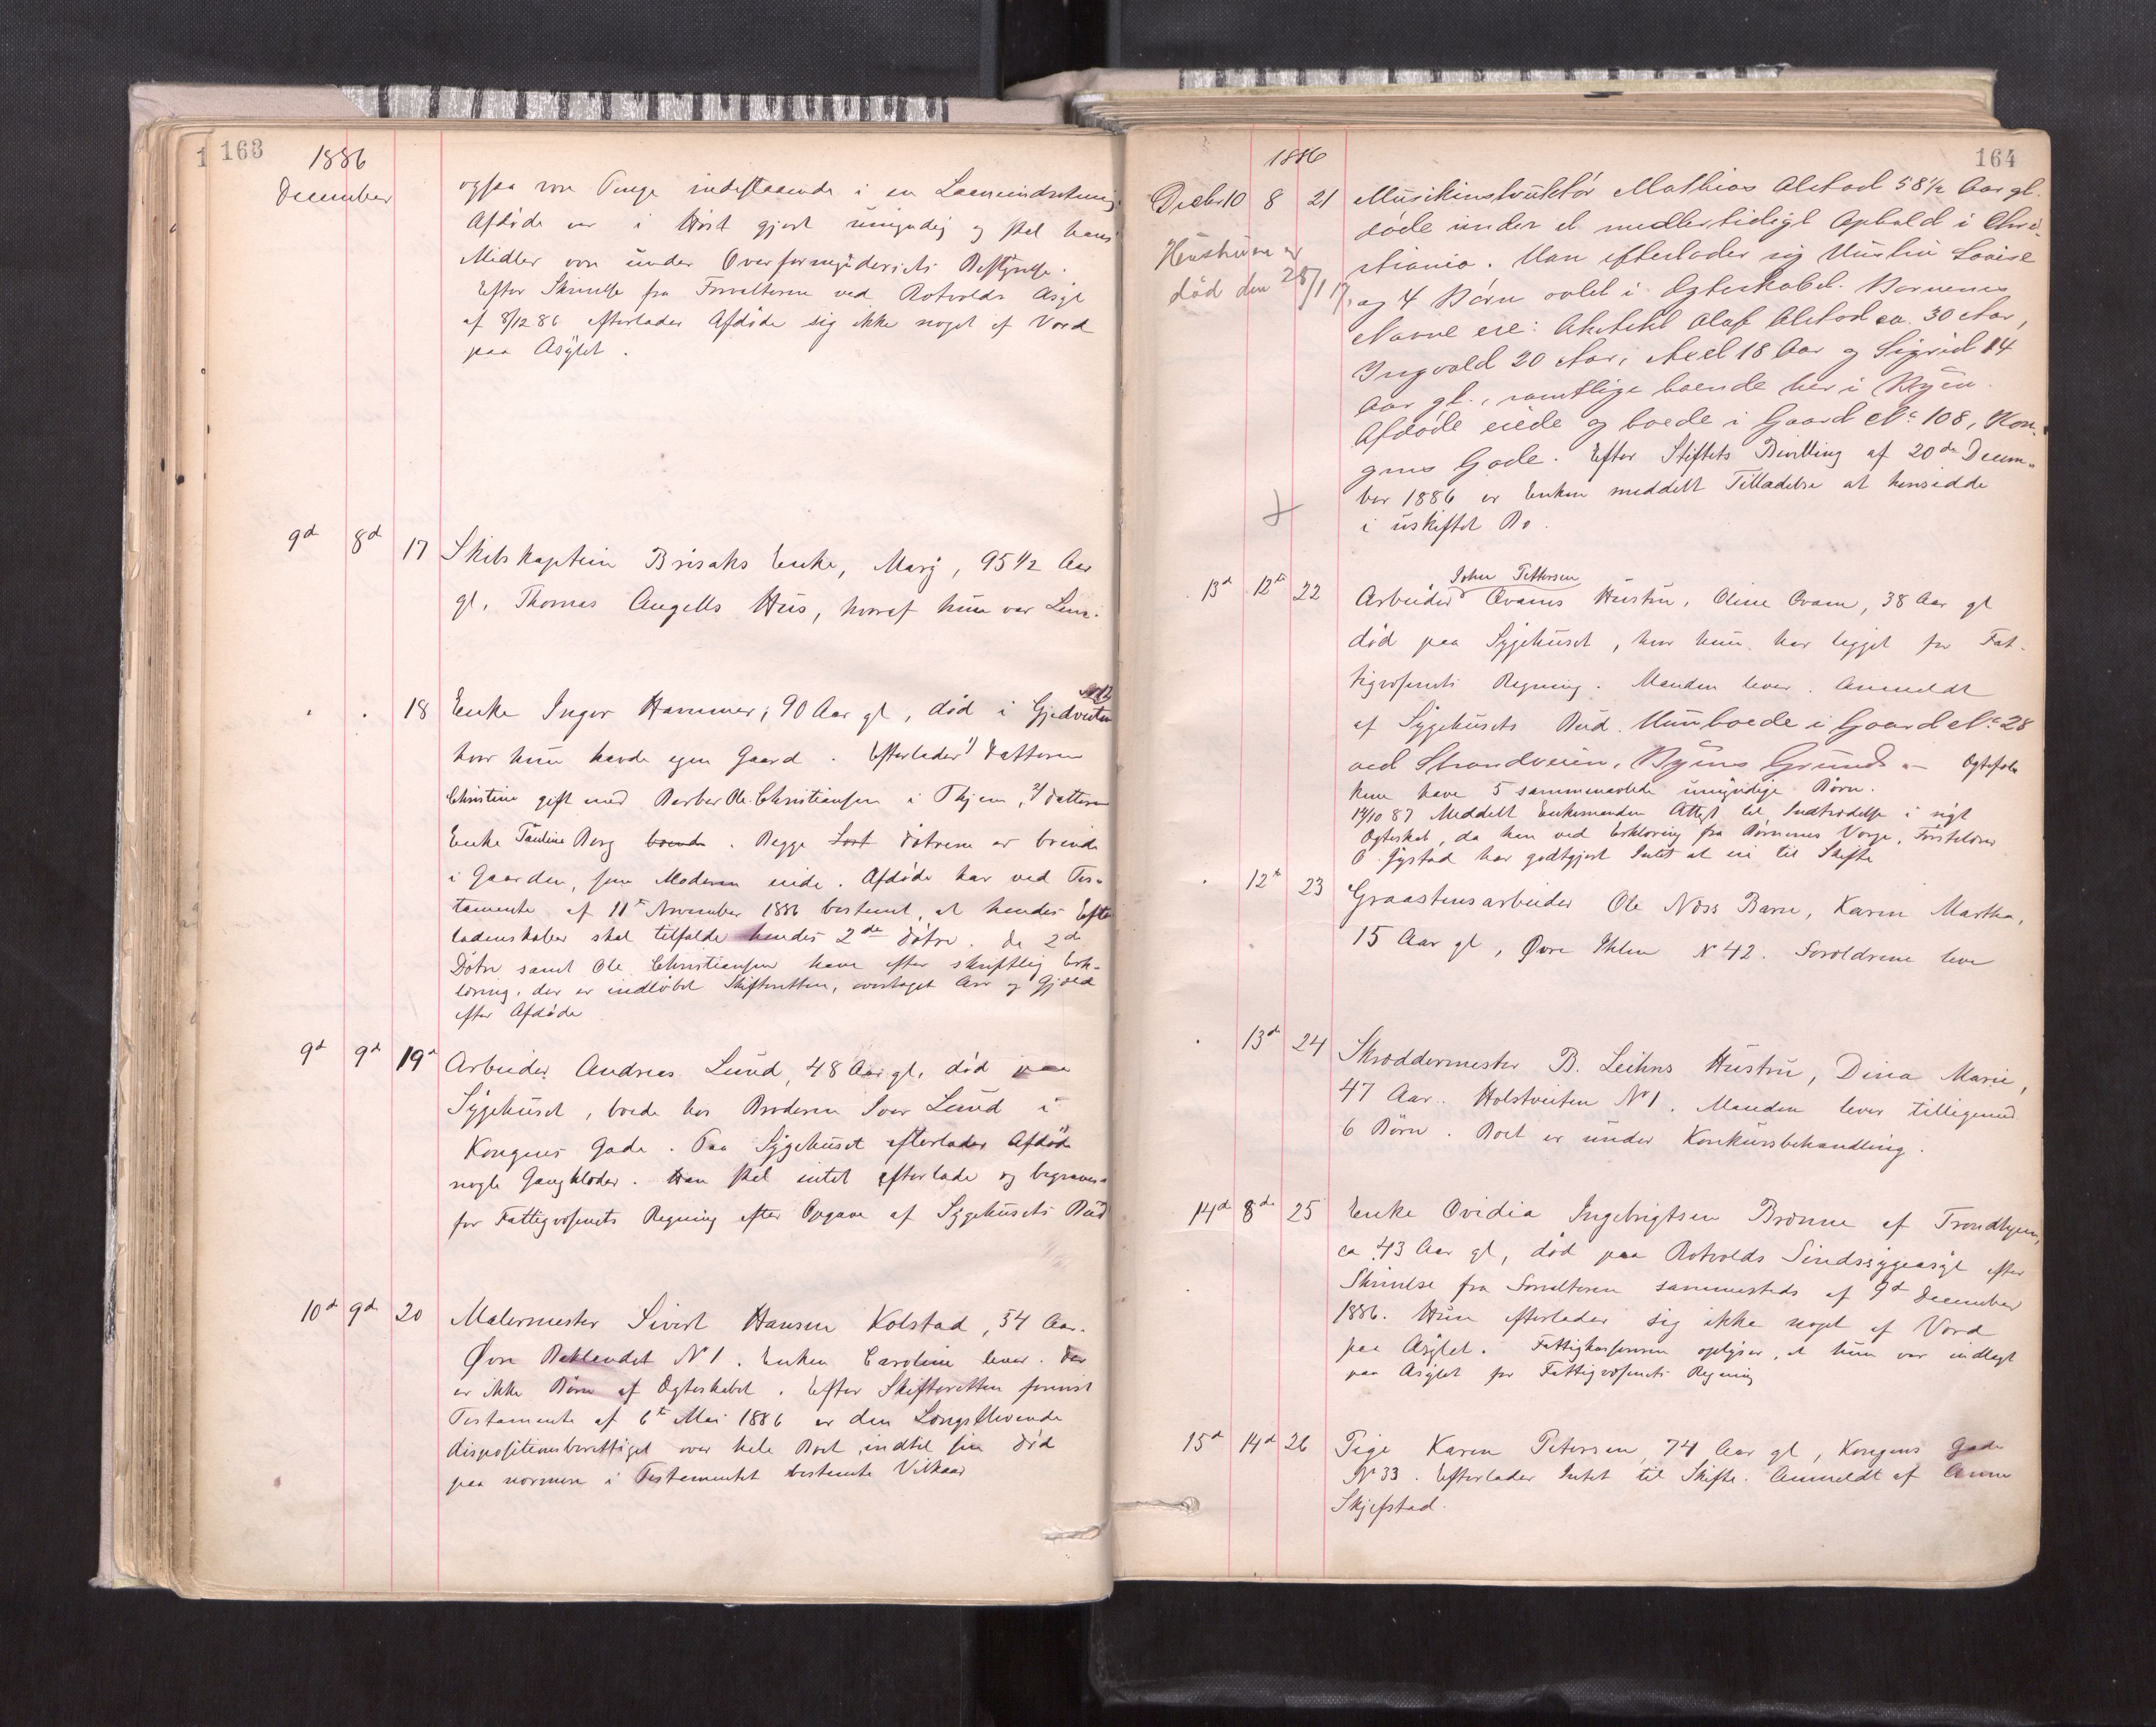 163
1886
December
ogsaa være Penge indestaaende i en Laaneindretning.
Afdøde var i Høst gjort umyndig og skal hans
Midler være under Overformynderiets Bestyrelse.
Efter Skrivelse fra Forvalteren ved Rotvolds Asyl
af 8/12 86 efterlader Afdøde sig ikke noget af Værd
paa Asylet.
9d 8d 17 Skibskaptein Brisaks Enke, Marj, 95 1/2 Aar
gl, Thomas Angells Hus, hvoraf hun var Lem.
" " 18 Enke Inger Hammer, 90 Aar gl, død i Gjedveiten
hvor hun havde egen Gaard. Efterlader 1) Datteren
Christine gift med Barber Ole Christiansen i Thjem, 2) Datteren
Enke Pauline Berg boende. Begge Døtrene er boende
i Gaarden, som Moderen eiede. Afdøde har ved Tes-
tamente af 11te November 1886 bestemt, at hendes Efter
ladenskaber skal tilfalde hendes 2de Døtre. De 2de
Døtre samt Ole Christiansen have efter skriftlig Erk-
læring, der er indløbet Skifteretten, overtaget Arv og Gjæld
efter Afdøde
9d 9d 19 Arbeider Andreas Lund, 48 Aar gl, død paa
Sygehuset, boede hos Broderen Iver Lund i
Kongens Gade. Paa Sygehuset efterlader Afdøde
nogle Gangklæder. Han skal intet efterlade og begraves
for Fattigvæsenets Regning efter Opgave af Sygehusets Bud
10d 9d 20 Malermester Sivert Hansen Kolstad, 54 Aar.
Øvre Baklandet No 1. Enken Caroline lever. Der
er ikke Børn af Ægteskabet. Efter Skifteretten forevist
Testamente af 6te Mai 1886 er den Længstlevende
dispositionsberettiget over hele Boet indtil sin Død
paa nærmere i Testamentet bestemte Vilkaar
164
1886
Decbr 10 8 21 Musikinstruktør Mathias Alstad 58 1/2 Aar gl.
døde under et midlertidigt Ophold i Chri-
Hustruen er
stiania. Han efterlader sig Hustru Lovise
død den 28/1 17
og 4 Børn avlet i Ægteskabet. Børnenes
Navne ere: Arkitekt Olaf Alstad ca. 30 Aar,
Ingvald 20 Aar, Axel 18 Aar og Sigrid 14
Aar gl., samtlige boende her i Byen.
Afdøde eiede og boede i Gaard No 108, Kon-
gens Gade. Efter Stiftets Bevilling af 20de Decem-
ber 1886 er Enken meddelt Tilladelse at hensidde
i uskiftet Bo.
13d 12te 22 Arbeider John Pettersen Qvams Hustru, Oline Qvam, 38 Aar gl
død paa Sygehuset, hvor hun har ligget for Fat-
tigvæsenets Regning. Manden lever. Anmeldt
af Sygehusets Bud. Hun boede i Gaard No 28
ved Strandveien, Byens Grund. - Ægtefol-
kene have 5 sammenavlede umyndige Børn.
14/10 87 Meddelt Enkemanden Attest til Indtrædelse i nyt
Ægteskab, da han ved Erklæring fra Børnenes Værge,
O. Gystad har godtgjort Intet at eie til Skifte
" 12te 23 Graastensarbeider Ole Næss Barn, Karen Martha,
15 Aar gl, Øvre Ihlen No 42. Forældrene leve
" 13de 24 Skræddermester B. Leihns Hustru, Dina Marie,
47 Aar. Holstveiten No 1. Manden lever tilligemed
6 Børn. Boet er under Konkursbehandling.
14d 8de 25 Enke Ovidia Ingebrigtsen Brønne af Trondhjem,
ca 43 Aar gl, død paa Rotvolds Sindssygeasyl efter
Skrivelse fra Forvalteren sammesteds af 9d December
1886. Hun efterlader sig ikke noget af Værd
paa Asylet. Fattigkassereren oplyser, at hun var indlagt
paa Asylet for Fattigvæsenets Regning
15d 14d 26 Pige Karen Petersen 74 Aar gl, Kongens Gade
No 33. Efterlader Intet til Skifte. Anmeldt af Anne
Skjefstad.